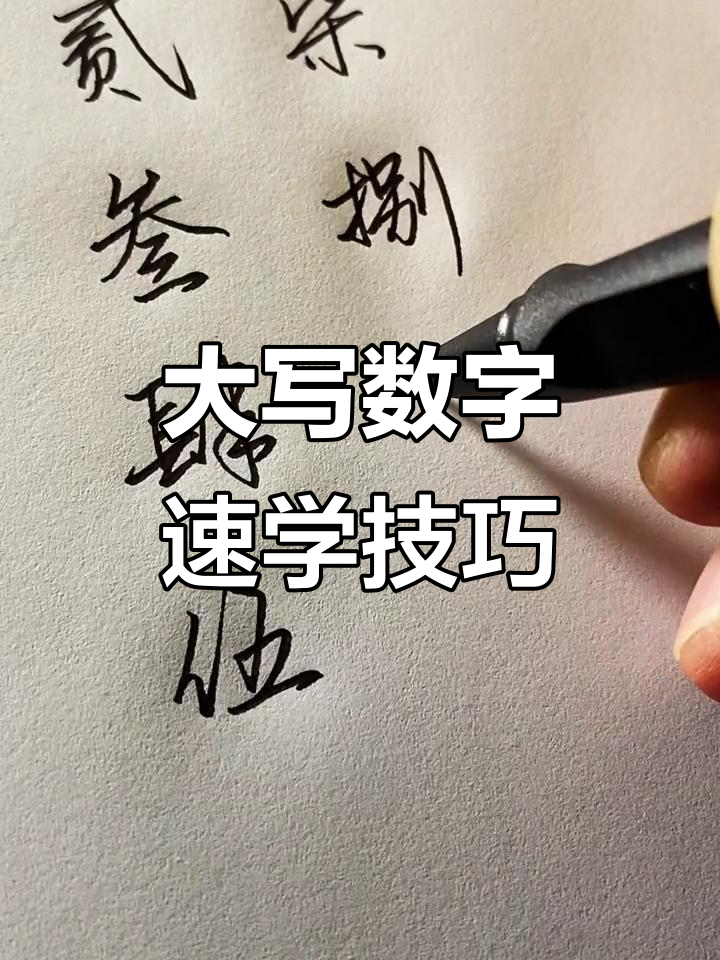 贰 柒
叁 捌
大写数字
肆
速学技巧
伍